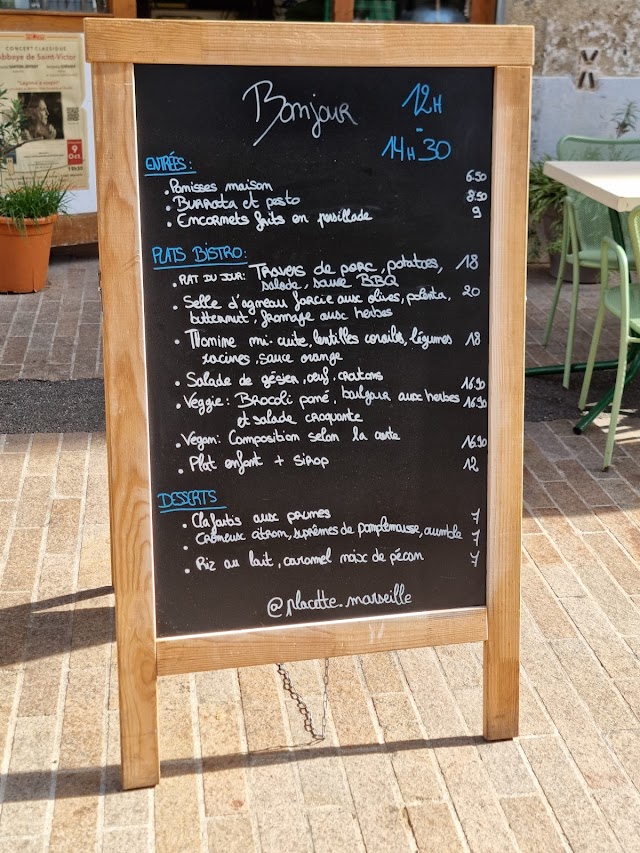 CONCERT CLASSIQUE
Abbaye de Saint-Victor
9
Oct.
Bonjour
12H
-
14H30
ENTRÉES:
• Panisses maison 6.50
• BURRATA et pesto 8.50
• Encornets frits en persillade 9
PLATS BISTRO:
• PLAT DU JOUR: Travers de porc, potatoes, 18
salade, sauce BBQ
• Selle d'agneau farcie aux olives, polenta, 20
butternut, fromage aux herbes
• Monine mi-cuite, lentilles corails, légumes 18
racines, sauce orange
• Salade de gésier, oeuf, croutons 16.90
• Veggie: Brocoli pané, boulgour aux herbes 16.90
et salade croquante
• Vegan: Composition selon la carte 16.90
• Plat enfant + sirop 12
DESSERTS
• Clafoutis aux prunes 7
• Crémeux citron, suprêmes de pamplemousse, crumble 7
• Riz au lait, caramel noix de pécan 7
@placette.marseille